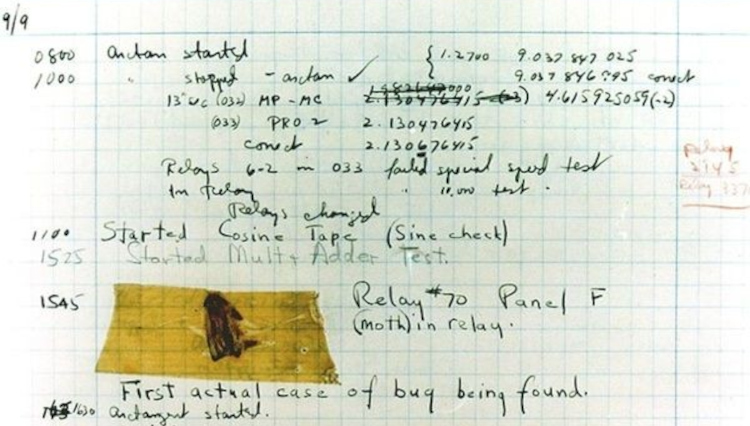 9/9
0800 arctan started { 1.2700 9.037 847 025
1000 " stopped - arctan ✓ 9.037 846 795 conect
13" uc (032) MP - MC 2.130476415 (-3) 4.615925059(-2)
(033) PRO 2 2.130476415
conect 2.130676415
Relays 6-2 in 033 failed special speed test
In Relay " 10,000 test .
Relays changed
Relay
3370
1100 Started Cosine Tape (Sine check)
1525 Started Mult + Adder Test.
1545 Relay #70 Panel F
(moth) in relay.
First actual case of bug being found.
1630 arctangent started.